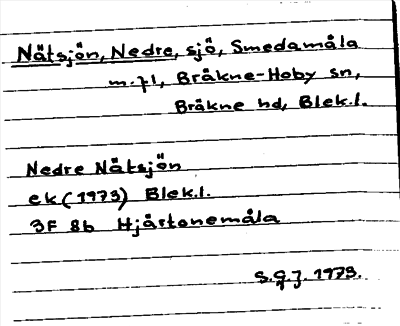 Nätsjön, Nedre, sjö, Smedamåla
m.fl, Bräkne-Hoby sn,
Bräkne hd, Blek.l.
Nedre Nätsjön
ek (1973) Blek.l.
3F 8b Hjärtonemåla
S.G.J. 1973.